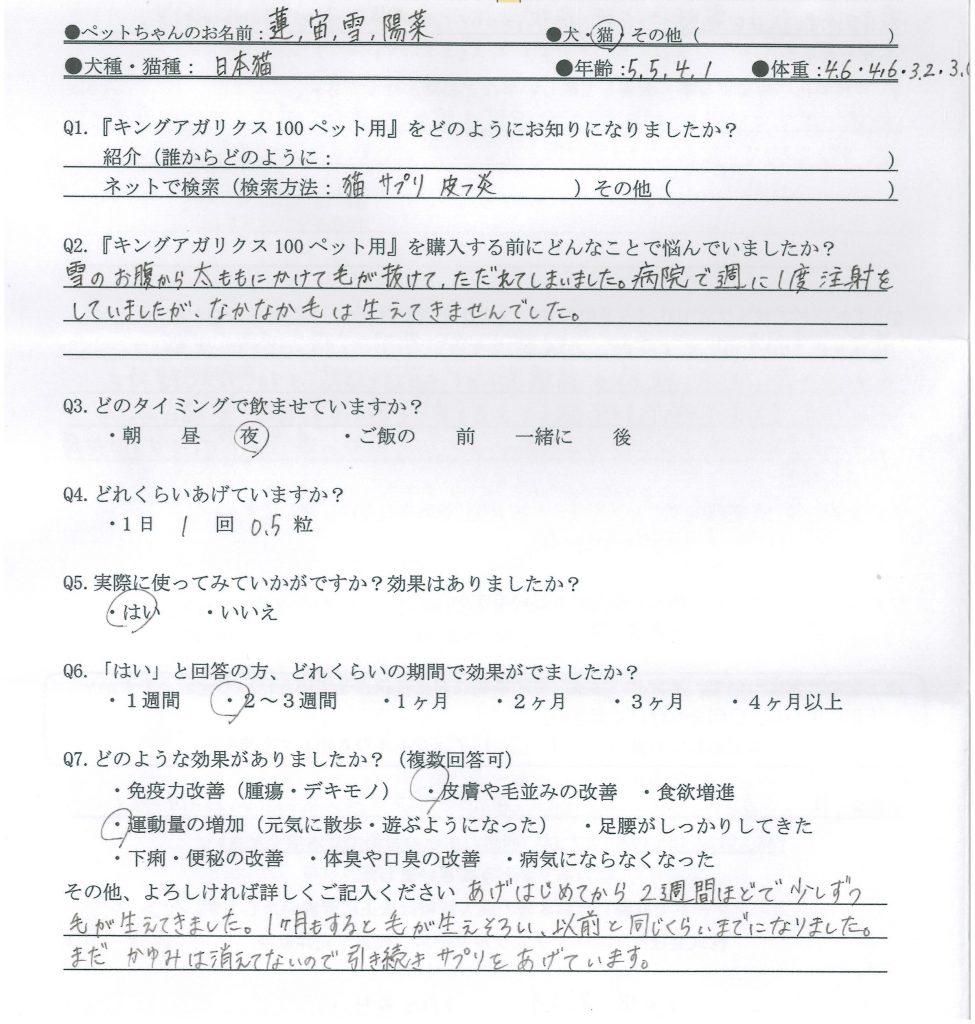 ●ペットちゃんのお名前：蓮,宙,雪,陽菜 ●犬・猫・その他（ ）
●犬種・猫種： 日本猫 ●年齢：5,5,4,1 ●体重：4.6・4.6・3.2・3.
Q1.『キングアガリクス100ペット用』をどのようにお知りになりましたか？
紹介（誰からどのように： ）
ネットで検索（検索方法：猫 サプリ 皮フ炎 ）その他（ ）
Q2.『キングアガリクス100ペット用』を購入する前にどんなことで悩んでいましたか？
雪のお腹から太ももにかけて毛が抜けて,ただれてしまいました。病院で週に1度注射を
していましたが、なかなか毛は生えてきませんでした。
Q3.どのタイミングで飲ませていますか？
・朝 昼 夜 ・ご飯の 前 一緒に 後
Q4.どれくらいあげていますか？
・1日 1 回 0.5 粒
Q5.実際に使ってみていかがですか？効果はありましたか？
・はい ・いいえ
Q6.「はい」と回答の方、どれくらいの期間で効果がでましたか？
・１週間 ・２～３週間 ・1ヶ月 ・２ヶ月 ・３ヶ月 ・４ヶ月以上
Q7.どのような効果がありましたか？（複数回答可）
・免疫力改善（腫瘍・デキモノ） ・皮膚や毛並みの改善 ・食欲増進
・運動量の増加（元気に散歩・遊ぶようになった） ・足腰がしっかりしてきた
・下痢・便秘の改善 ・体臭や口臭の改善 ・病気にならなくなった
その他、よろしければ詳しくご記入ください あげはじめてから2週間ほどで少しずつ
毛が生えてきました。1ヶ月もすると毛が生えそろい、以前と同じくらいまでになりました。
まだ かゆみは消えてないので引き続きサプリをあげています。